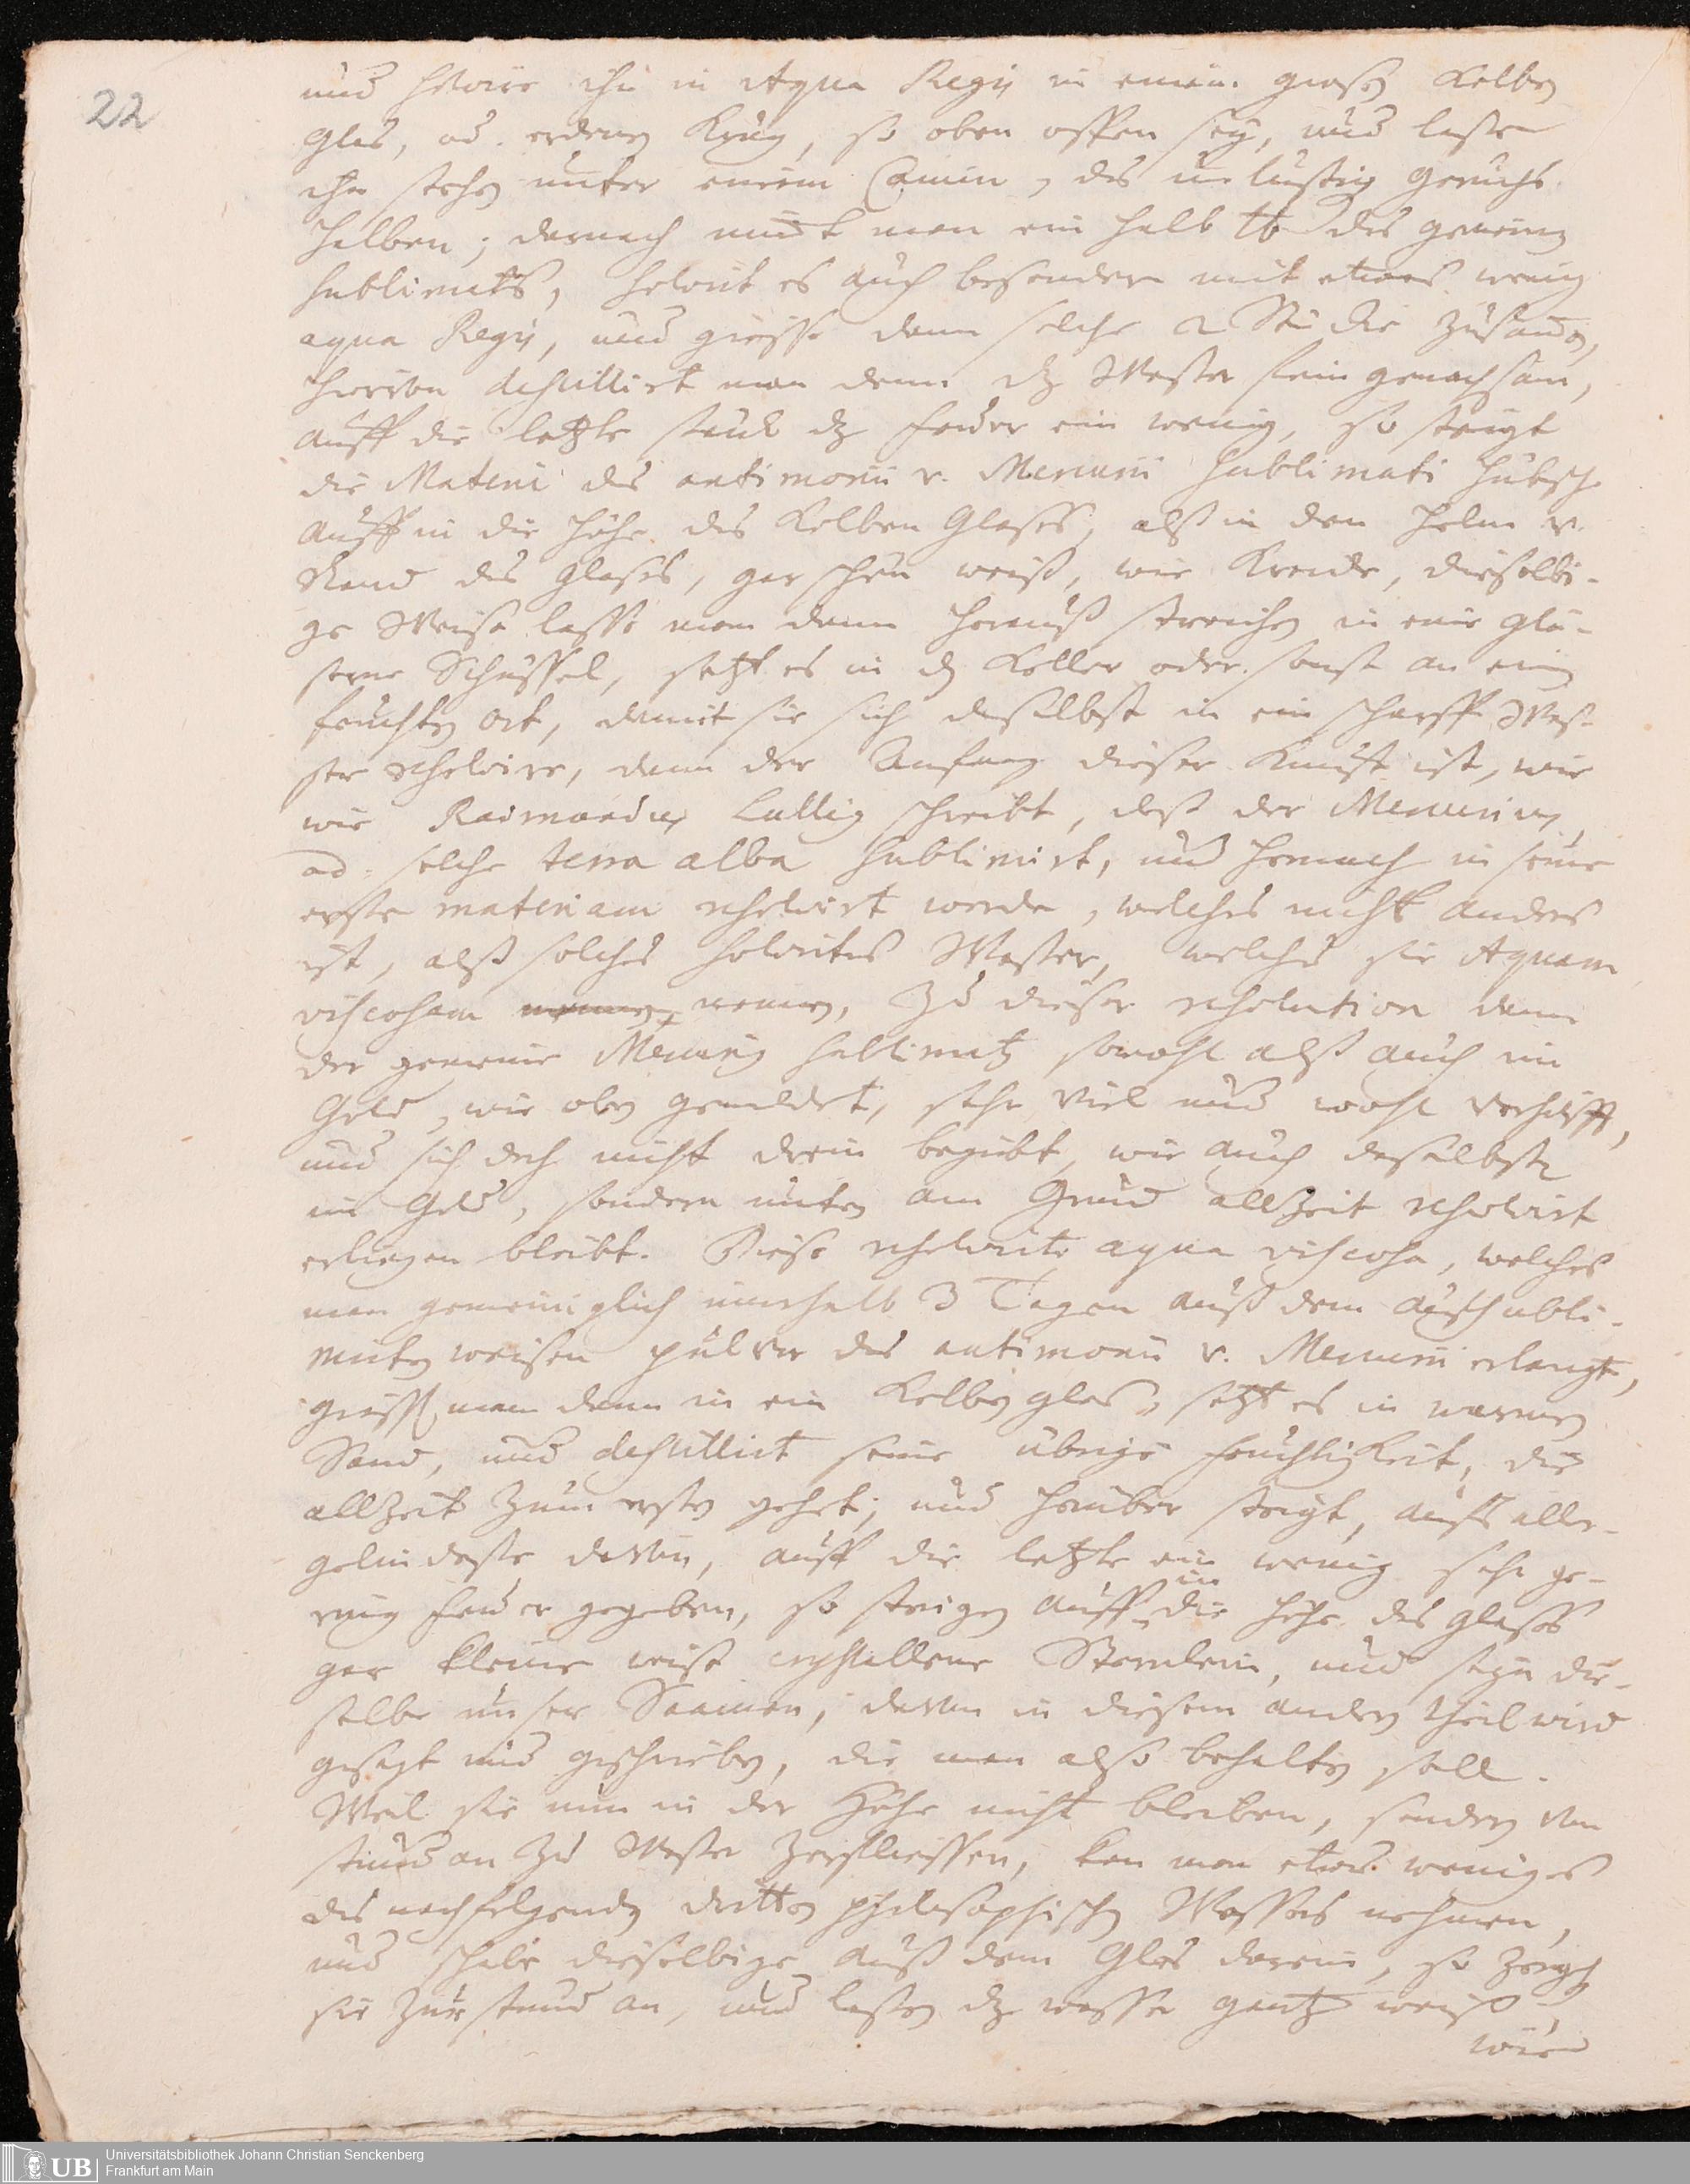 22
und solvire ihn in Aqua Regij in einem großen Kolben
Glas, od. erdenen Krug, so oben offen sey, und lasse
ihn stehen unter einem Camin, des unlustigen Geruchs
halben; darnach nimbt man ein halb lb des gemeinen
sublimats, solvirt es auch besonders mit etwas wenig
aqua Regij, und giesse dann solche 2 Stücke zusammen,
hiervon destillirt man denn dz Wasser fein gemachsam,
auff die letzte sterck dz feuer ein wenig, so steigt
die Materi des antimonii v. Mercurii sublimati hübsch
auff in die höhe des Kolben Glases, alß in den helm v.
Rand des Glases, gar schön weiß, wie Kreide, dieselbi-
ge Weise lasse man dann herauß streichen in eine glä-
serne Schüssel, setzt es in den Keller oder sonst an einen
feuchten ort, damit sie sich daselbst in ein scharff Was-
ser resolvire, denn der Anfang dieser Kunst ist, wie
wie Raimondus Lullius schreibt, daß der Mercurius,
od. solche terra alba sublimirt, und hernach in seine
erste materiam resolvirt werde, welches nicht anders
ist, alß solches solvirtes Wasser, welches sie Aquam
viscosam nennen, Zu dieser resolution dann
der gemeine Mercurius sublimatus sowohl alß auch im
Gold, wie oben gemeldet, sehr viel und wohl verhilfft,
und sich doch nicht drein begiebt, wie auch daselbsten
im Gold, sondern unten am Grund allzeit resolvirt
erliegen bleibt. Diese resolvirte aqua viscosa, welches
man gemeiniglich innerhalb 3 Tagen auß dem auffsubli-
mirten weisen pulver des antimonii v. Mercurii erlangt,
giesst man denn in ein Kolben glas, setzt es in warmen
Sand, und destillirt seine übrige feuchtigkeit, die
allzeit zum ersten gehet, und herüber steigt, auffs aller-
gelindeste davon, auff die letzte ein wenig sehr ge-
ring feuer gegeben, so steigen auff in die höhe des Glases
gar kleine weise crystallene Sternlein, und seyn die-
selbe unser Saamen, davon in diesem andern theil wird
gesagt und geschrieben, die man also behalten soll.
Weil sie nun in der Höhe nicht bleiben, sondern von
stund an zu Wasser zerfliessen, kan man etwas weniges
des nachfolgenden dritten philosophischen Wassers nehmen,
und schabe dieselbige auß dem Glas darein, so zergehen
sie zur stund an, und lassen dz wasser gantz weiß,
wie
UB Universitätsbibliothek Johann Christian Senckenberg
Frankfurt am Main